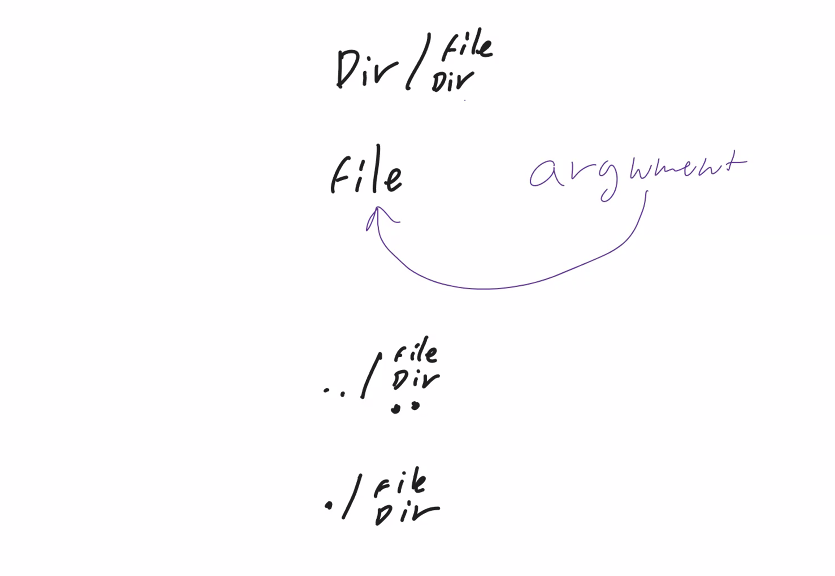 Dir / File
Dir
File
argument
../ File
Dir
..
./ File
Dir